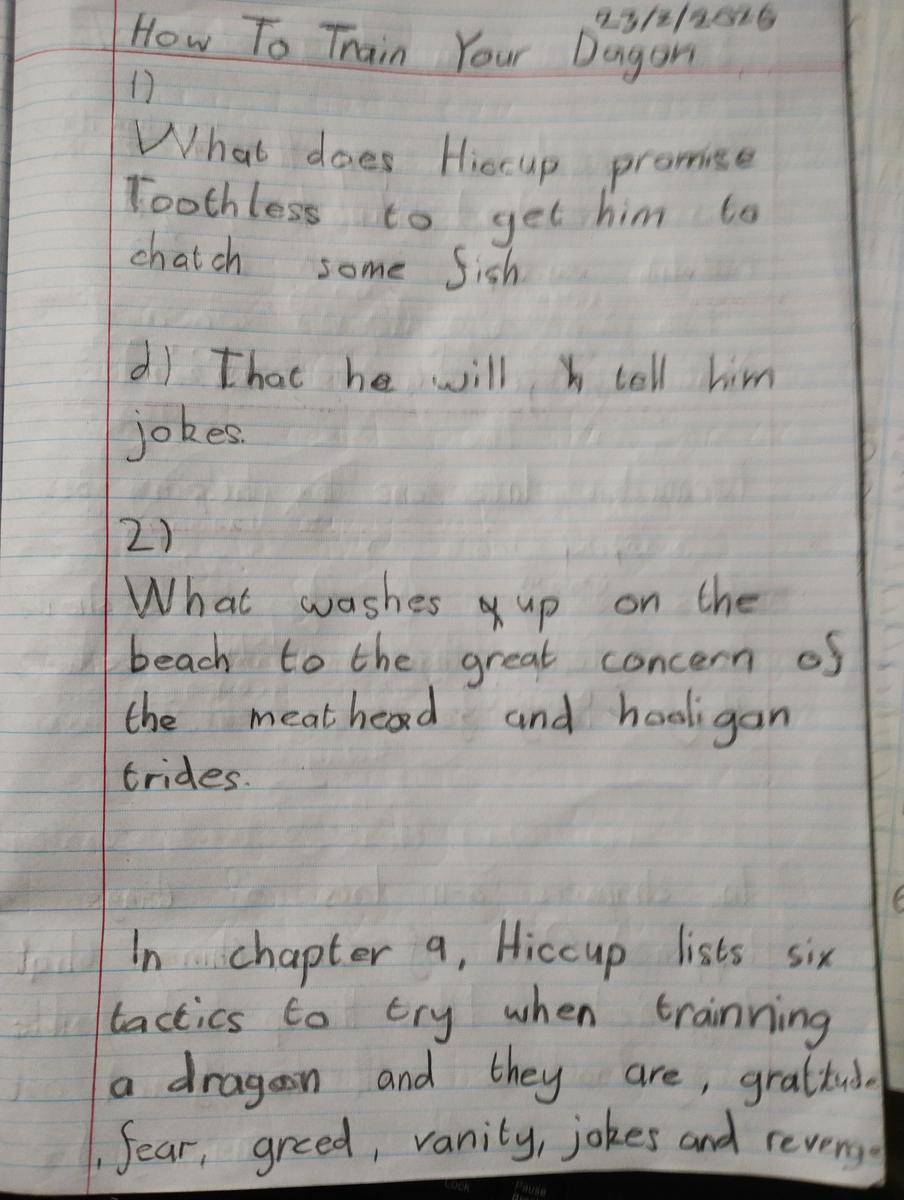 23/2/2026
How To Train Your Dragon
1)
What does Hiccup promise
Toothless to get him to
chatch some fish
d) That he will tell him
jokes.
2)
What washes up on the
beach to the great concern of
the meathead and hooligan
trides.
In chapter 9, Hiccup lists six
tactics to try when trainning
a dragon and they are, gratitude
, fear, greed, vanity, jokes and revenge
Lock
Pause